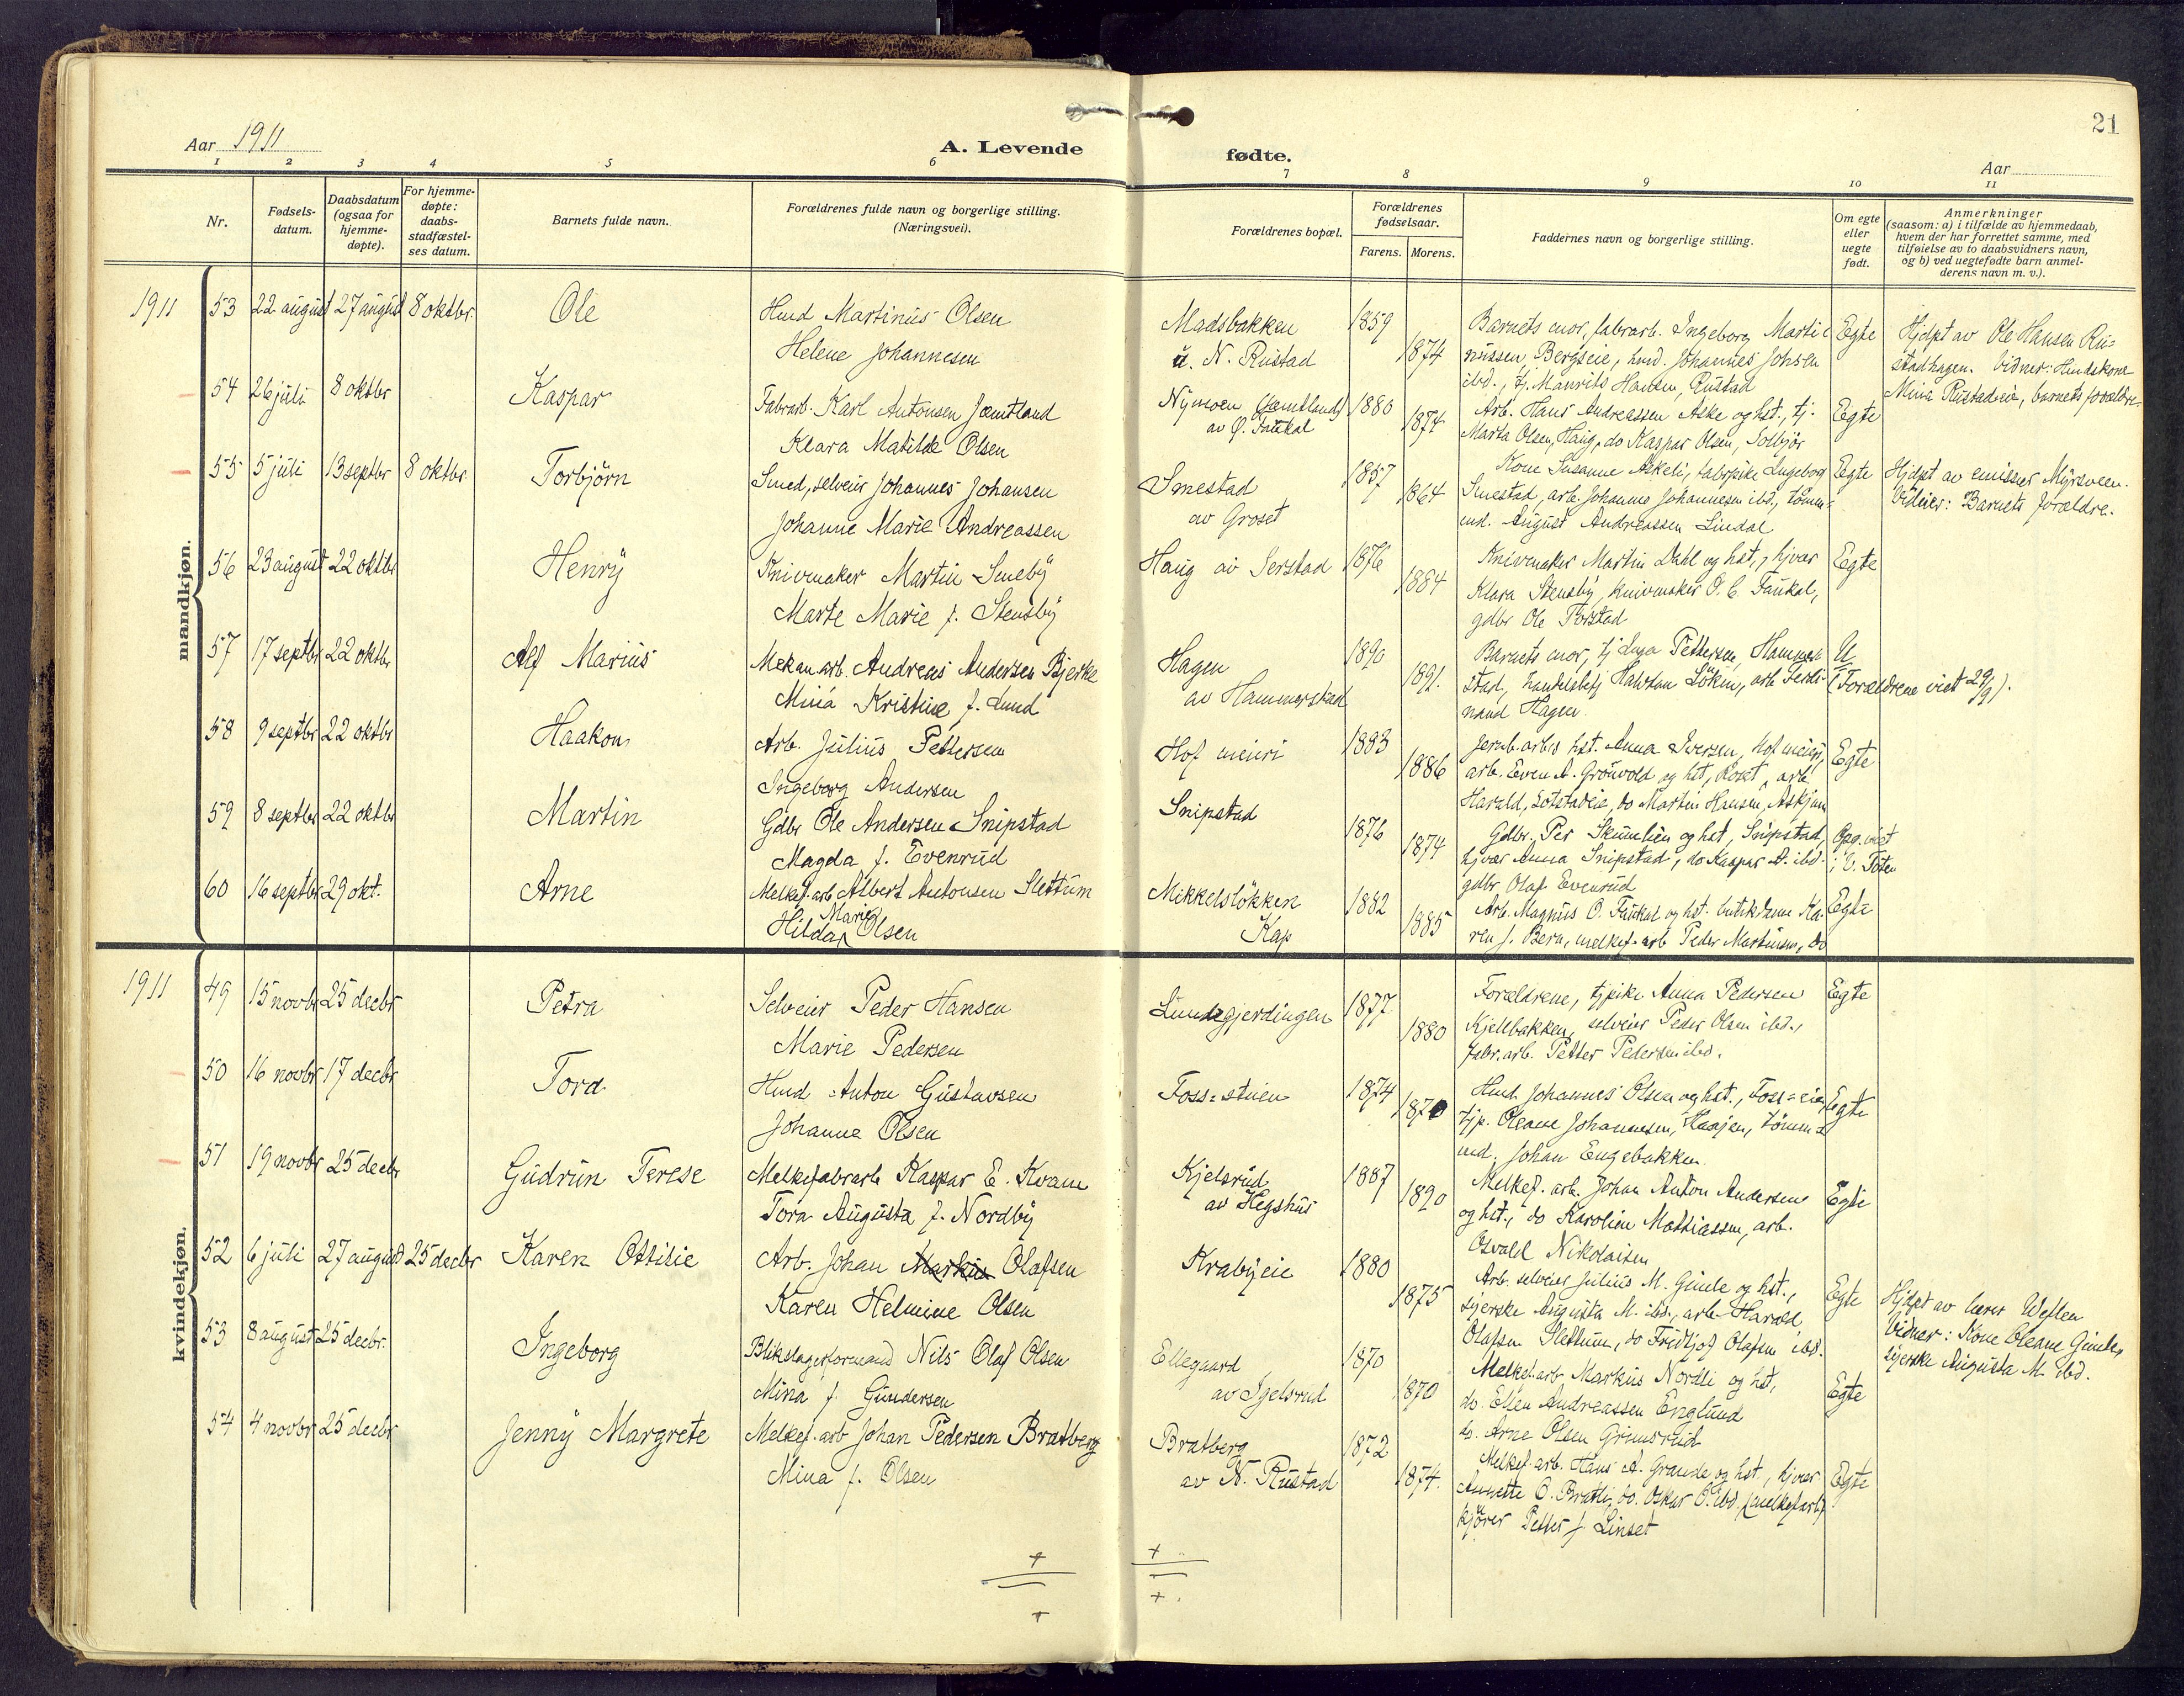 Aar 1911
A. Levende
fødte.
21
Aar
1 2 3 4 5 6 7 8 9 10 11
Nr.
Fødsels-
datum.
Daabsdatum
(ogsaa for
hjemme-
døpte).
For hjemme-
døpte:
daabs-
stadfæstel-
ses datum.
Barnets fulde navn.
Forældrenes fulde navn og borgerlige stilling.
(Næringsvei).
Forældrenes bopæl.
Forældrenes
fødselsaar.
Farens. Morens.
Faddernes navn og borgerlige stilling.
Om egte
eller
uegte
født.
Anmerkninger
(saasom: a) i tilfælde av hjemmedaab,
hvem der har forrettet samme, med
tilføielse av to daabsvidners navn,
og b) ved uegtefødte barn anmel-
derens navn m. v.).
mandkjøn.
1911 53 22 august 27 august 8 oktbr. Ole
Hmd Martinus Olsen
Helene Johannesen
Madsbakken
u. N. Rustad
1859
1874
Barnets mor, fabrarb. Ingeborg Marti=
nussen, Bergseie, hmd. Johannes Johsen
ibd., tj. Maurits Hansen, Rustad
Egte
Hjdpt av Ole Hansen Ru=
stadhagen. Vidner: Hmdskone
Mina Rustadeie, barnets forældre.
54 26 juli 8 oktbr Kaspar
Fabrarb. Karl Antonsen Jæmtland
Klara Matilde Olsen
Nymoen (Jæmtland)
av Ø. Faukal
1880
1874
Arb. Hans Andreassen Aske og hst., tj.
Marta Olsen, Haug, do Kaspar Olsen, Solbjør
Egte
55 5 juli 13 septbr 8 oktbr. Torbjörn
Smed, selveier Johannes Johansen
Johanne Marie Andreassen
Smestad
av Groset
1857
1864
Kone Susanne Askeli, fabrpike Ingeborg
Smestad, arb. Johannes Johannesen ibd., tömm=
md. August Andreassen Lindal
Egte
Hjdpt av emissær Myrsveen.
Vidner: Barnets forældre.
56 23 august 22 oktbr Henry
Knivmaker Martin Smeby
Marte Marie f. Stensby
Haug av Serstad
1876
1884
Knivmaker Martin Dahl og hst., hjvar
Klara Stensby, knivmaker O. C. Faukal,
gdbr Ole Forstad
Egte
57 17 septbr 22 oktbr Alf Marius
Mekan.arb. Andreas Andersen Bjerke
Mina Kristine f. Lund
Hagen
av Hammerstad
1890
1891.
Barnets mor, tj Inga Pettersen, Hammer
stad, handelsbetj Halvdan Lökin, arb Ferdi=
nand Hagen
U
(Forældrene viet 29/9).
58 9 septbr 22 oktbr Haakon
Arb. Julius Pettersen
Ingeborg Andersen
Hof meieri
1883
1886
Jernb.arbs hst. Anna Iversen, Hof meieri,
arb. Even A. Grönvold og hst, Rost, arb
Harald, Sotstadeie, do Martin Hansen, Askjum
Egte
59 8 septbr 22 oktbr Martin
Gdbr Ole Andersen Snipstad
Magda f. Evenrud
Snipstad
1876
1874
Gdbr. Per Skumlien og hst, Snipstad,
hjvar Anna Snipstad, do Kaspar A. ibd.
gdbr Olaf Evenrud
Opg. viet
i V. Toten
60 16 septbr 29 okt. Arne
Melkef.arb Albert Antonsen Slettum
Hilda Marie Olsen
Mikkelslökken
Kap
1882
1885
Arb. Magnus O. Faukal og hst. butikdame Ka=
ren J. Bern, melkef.arb Peder Martinsen, do
Egte
kvindekjøn.
1911 49 15 novbr 25 decbr Petra
Selveier Peder Hansen
Marie Pedersen
Lundegjerdingen
1877
1880
Forældrene, tjpike Anna Pedersen
Kjellbakken, selveier Peder Olsen ibd.,
fabr.arb. Petter Pedersen ibd.
Egte
50 16 novbr 17 decbr Tora
Hmd Anton Gustavsen
Johanne Olsen
Foss=stuen
1874
1870
Hmd Johannes Olsen og hst., Foss=eie
tjp. Oleane Johannesen, Haajen, tömm=
md. Johan Engebakken.
Egte
51 19 novbr 25 decbr Gudrun Terese
Melkefabrarb Kaspar E. Kvam
Tora Augusta f. Nordby
Kjelsrud
av Hegshus
1887
1890
Melkef. arb. Johan Anton Andersen
og hst., do Karoline Mattiassen, arb.
Osvald Nikolaisen
Egte
52 6 juli 27 august 25 decbr Karen Ottilie
Arb. Johan Markus Olafsen
Karen Helmine Olsen
Krabyeie
1880
1875
Arb. selveier Julius M. Gimle og hst.,
syerske Augusta M. ibd., arb. Harald
Olafsen Slettum, do Fridtjof Olafsen ibd.
Egte
Hjdpt av lærer Weflen
Vidner: Kone Oleane Gimle,
syerske Augusta M. ibd.
53 8 august 25 decbr. Ingeborg
Blikslagerformand Nils Olaf Olsen
Mina f. Gundersen
Ellegaard
av Igelsrud
1870
1870
Melkef.arb. Markus Nordli og hst,
do. Ellen Andreassen Englund
do. Arne Olsen Grimsrud
Egte
54 4 novbr 25 decbr Jenny Margrete
Melkef.arb Johan Pedersen Bratberg
Mina f. Olsen
Bratberg
av N. Rustad
1872
1874.
Melkef.arb. Hans A. Grande og hst., hjvar
Annette O. Bratli, do. Oskar O. ibd. (melkef.arb)
kjörer Petter J. Linset
Egte